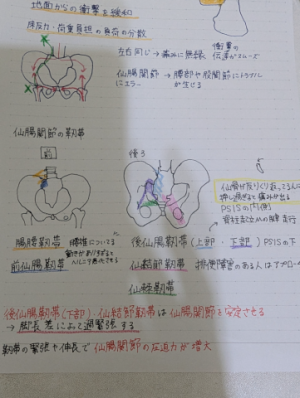 地面からの衝撃を緩和
床反力・荷重負担の負荷の分散
左右同じ → 痛みに無縁
衝撃の
伝達がスムーズ
仙腸関節 → 腰部や股関節にトラブル
にエラー が生じる
仙腸関節の靭帯
前
後ろ
PSISの内側
腸腰靭帯
腰椎についてる
前仙腸靭帯
後仙腸靭帯(上部・下部) PSISの下
仙結節靭帯
仙棘靭帯
後仙腸靭帯(下部)・仙結節靭帯は仙腸関節を安定させる
→ 脚長差によって過緊張する
靭帯の緊張や伸長で仙腸関節の圧迫力が増大